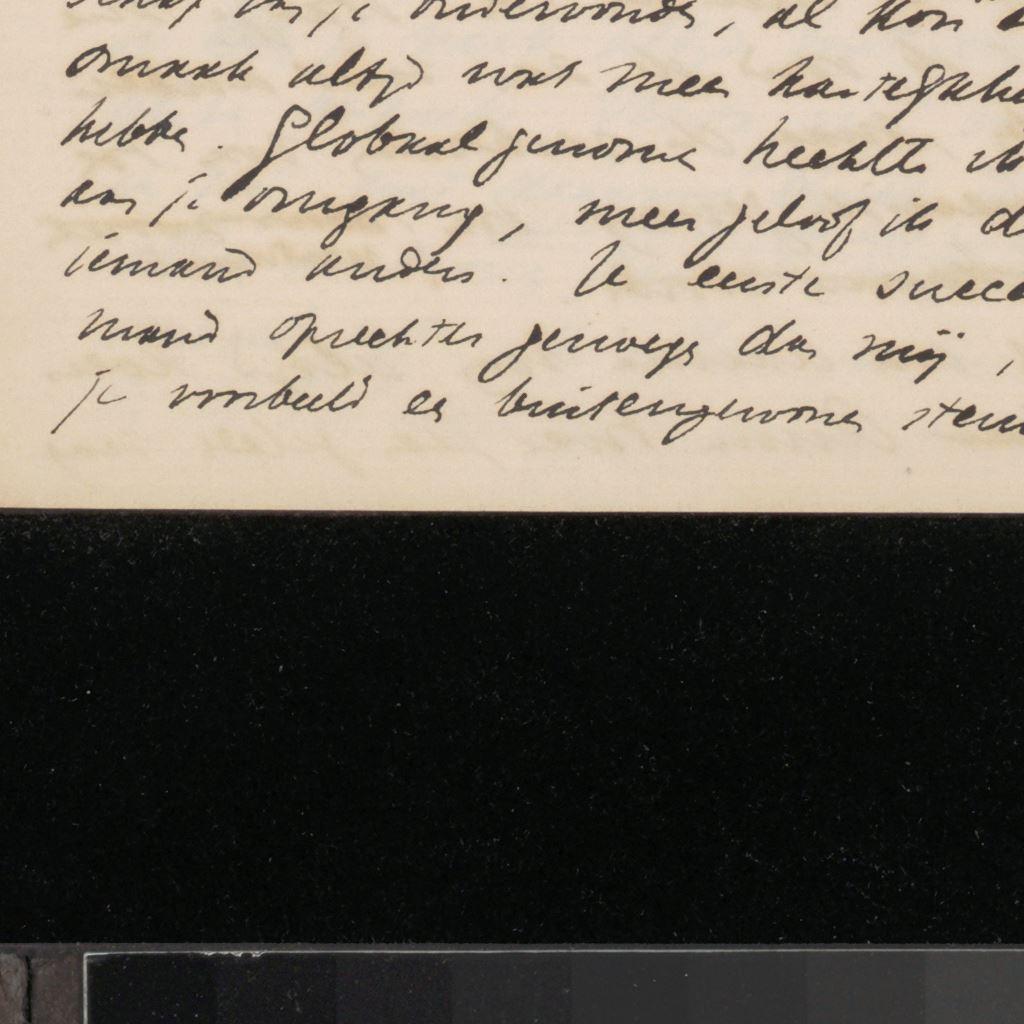 van je ondervonden, al kon
smaak altijd wat meer
hebben. Globaal genomen hechtte ik
aan je omgang, meer geloof ik d
iemand anders. Je eerste succe
mand oprechter genoegen dan mij,
je voorbeeld en buitengewone steu